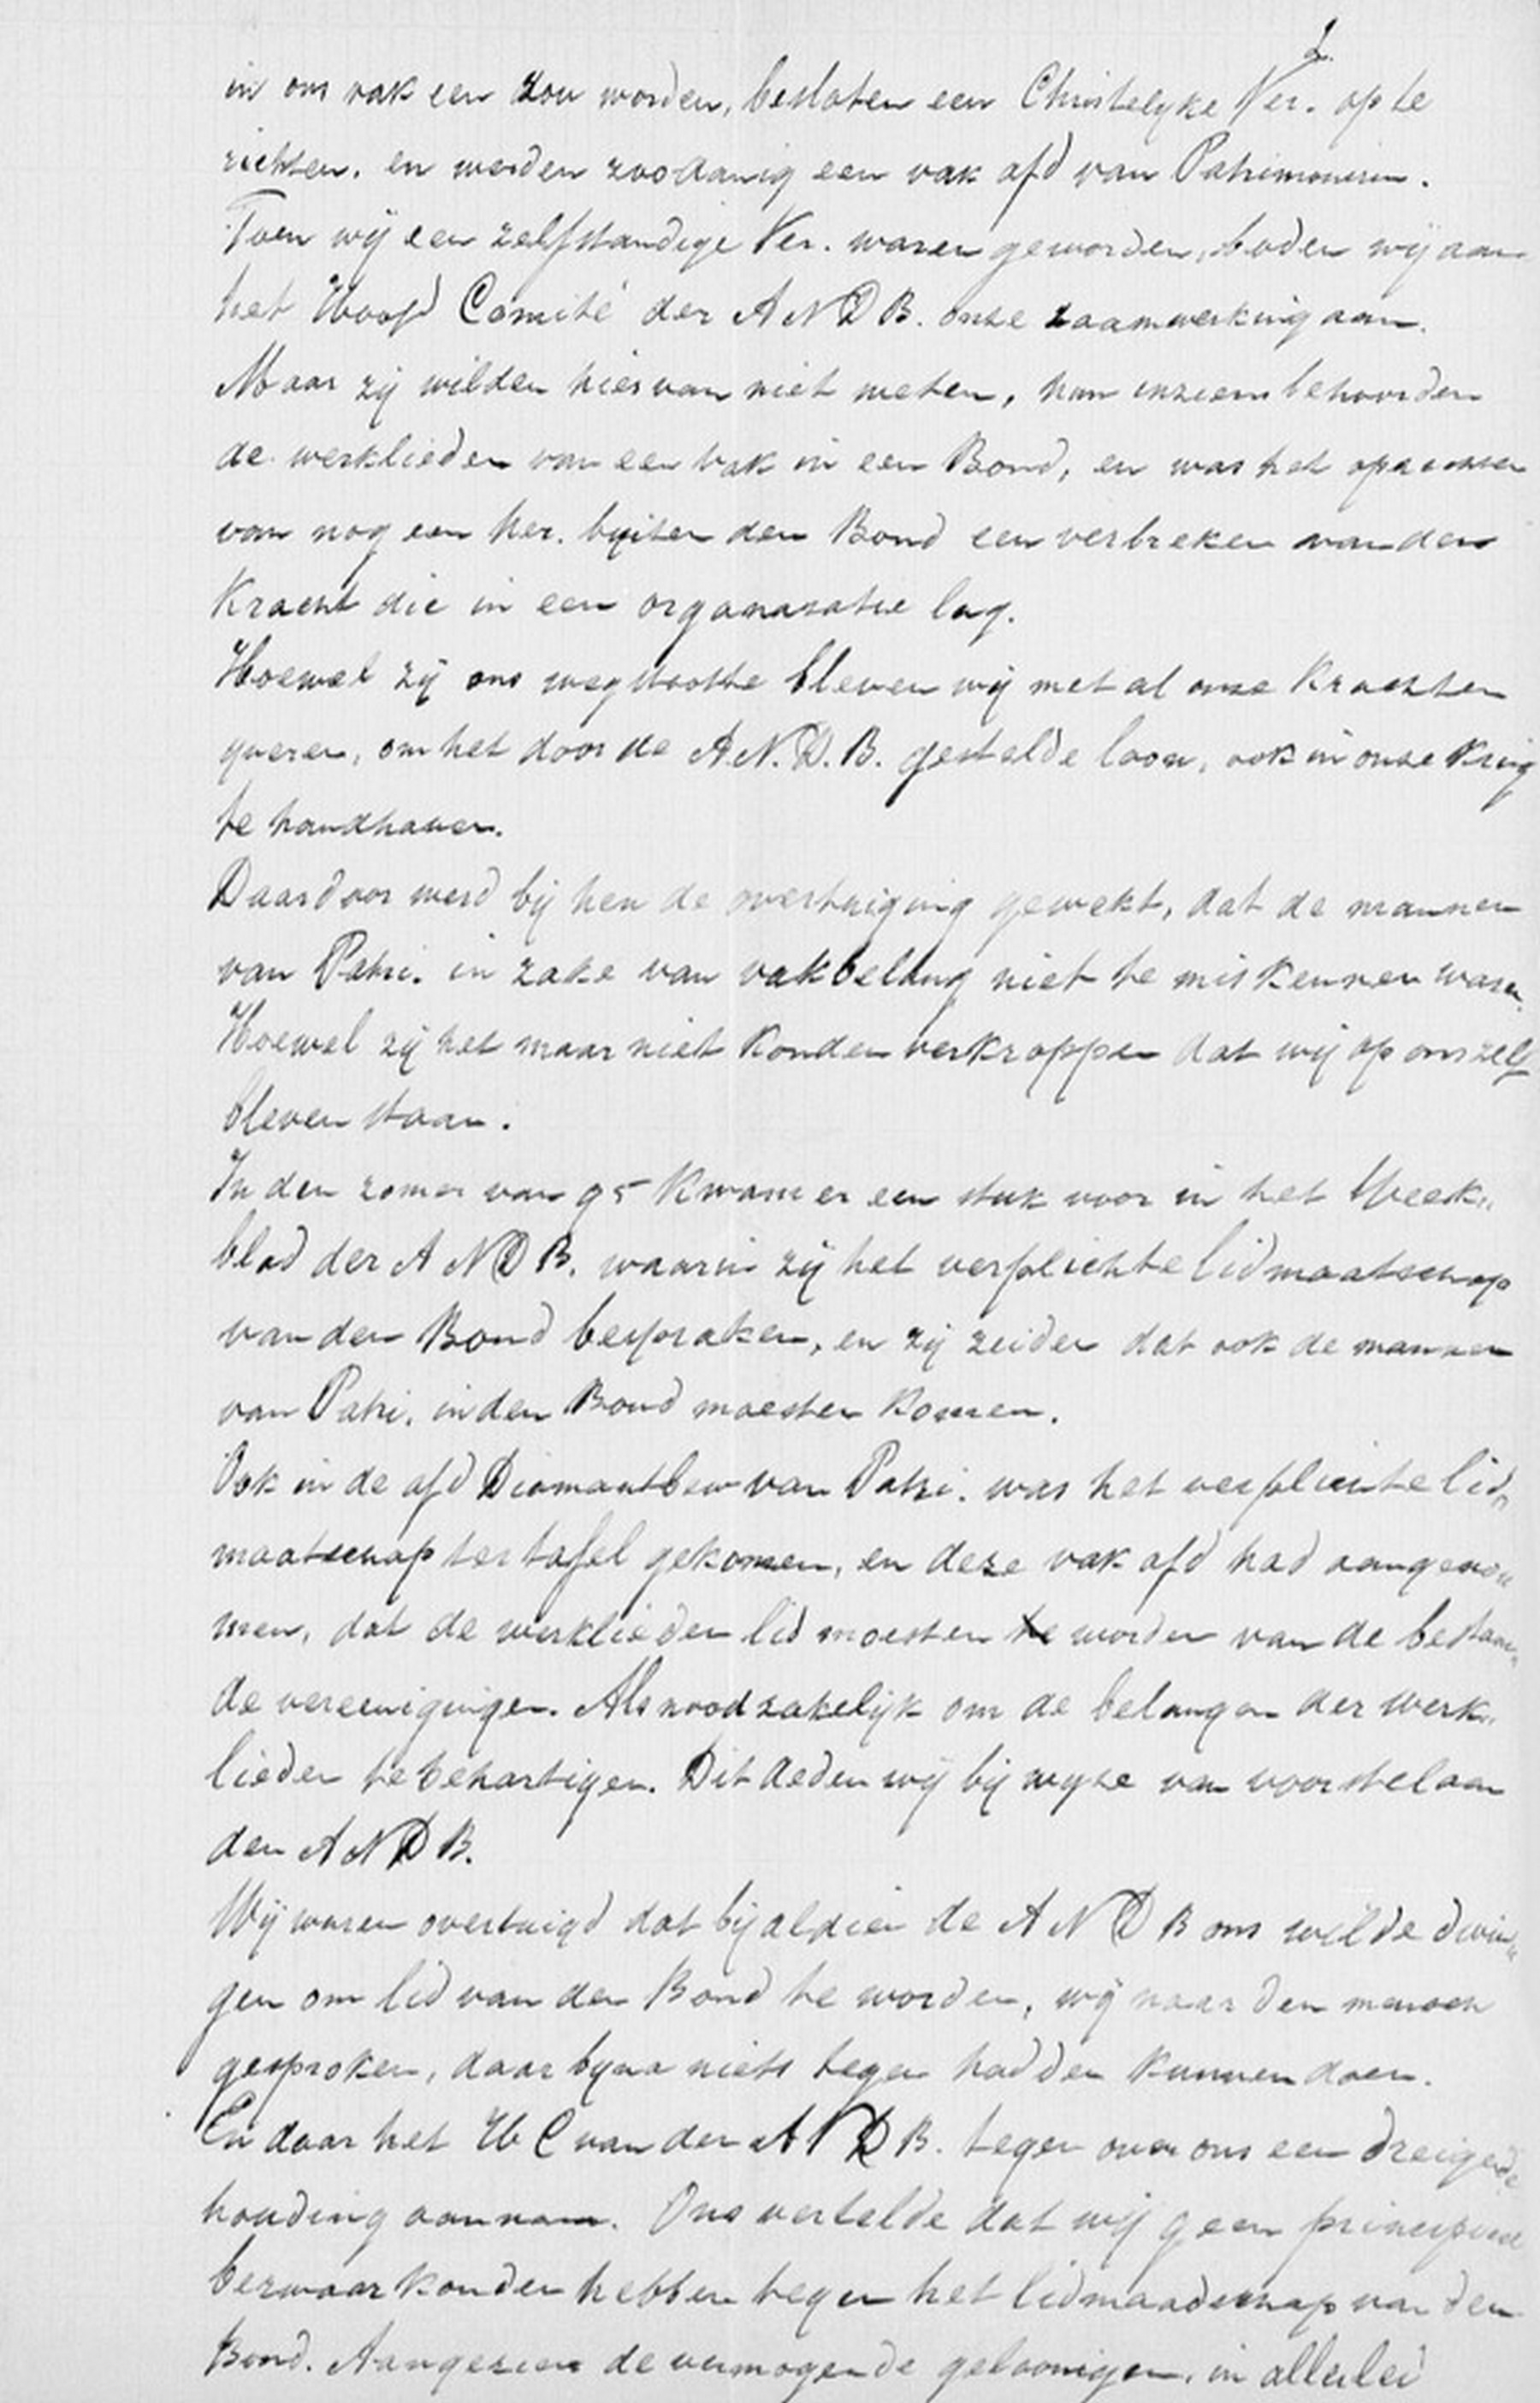 2.
in ons vak een zou worden, besloten een Christelyke Ver. op te
richten. en werden zoodanig een vak afd van Patrimonium.
Toen wij een zelfstandige Ver. waren geworden, boden wij aan
het Hoofd Comité der A N D B. onze zaamwerking aan.
Maar zij wilden hiervan niet weten, hun inziens behoorden
de werklieden van een vak in een Bond, en was het oprichten
van nog een Ver. buiten den Bond een verbreken van den
Kracht die in een organasatie lag.
Hoewel zij ons wegstootte bleven wij met al onze Krachten
yveren, om het door de A.N.D.B. gestelde loon, ook in onze Kring
te handhaven.
Daardoor werd bij hen de overtuiging gewekt, dat de mannen
van Patri. in zake van vakbelang niet te miskennen waren.
Hoewel zij het maar niet Konden verkroppen dat wij op ons zelf
bleven staan.
In den zomer van 95 Kwam er een stuk voor in het Week„
blad der A N D B. waarin zij het verplichte lidmaatschap
van den Bond bespraken, en zij zeiden dat ook de mannen
van Patri. in den Bond moesten Komen.
Ook in de afd Diamantbew van Patri. was het verplichte lid„
maatschap ter tafel gekomen, en deze vak afd had aangenom„
men, dat de werklieden lid moesten te worden van de bestaan„
de vereenigingen. Als noodzakelijk om de belangen der werk„
lieden te behartigen. Dit deden wij bij wyze van voorstel aan
den A N D B.
Wij waren overtuigd dat bij aldien de A N D B ons wilde dwin„
gen om lid van den Bond te worden, wij naar den mensch
gesproken, daar byna niets tegen hadden Kunnen doen.
En daar het H C van der A N D B. tegen over ons een dreigende
houding aannam. Ons vertelde dat wij geen principieel
bezwaar konden hebben tegen het lidmaadschap van den
Bond. Aangezien de vermogende geloovigen, in allerlei